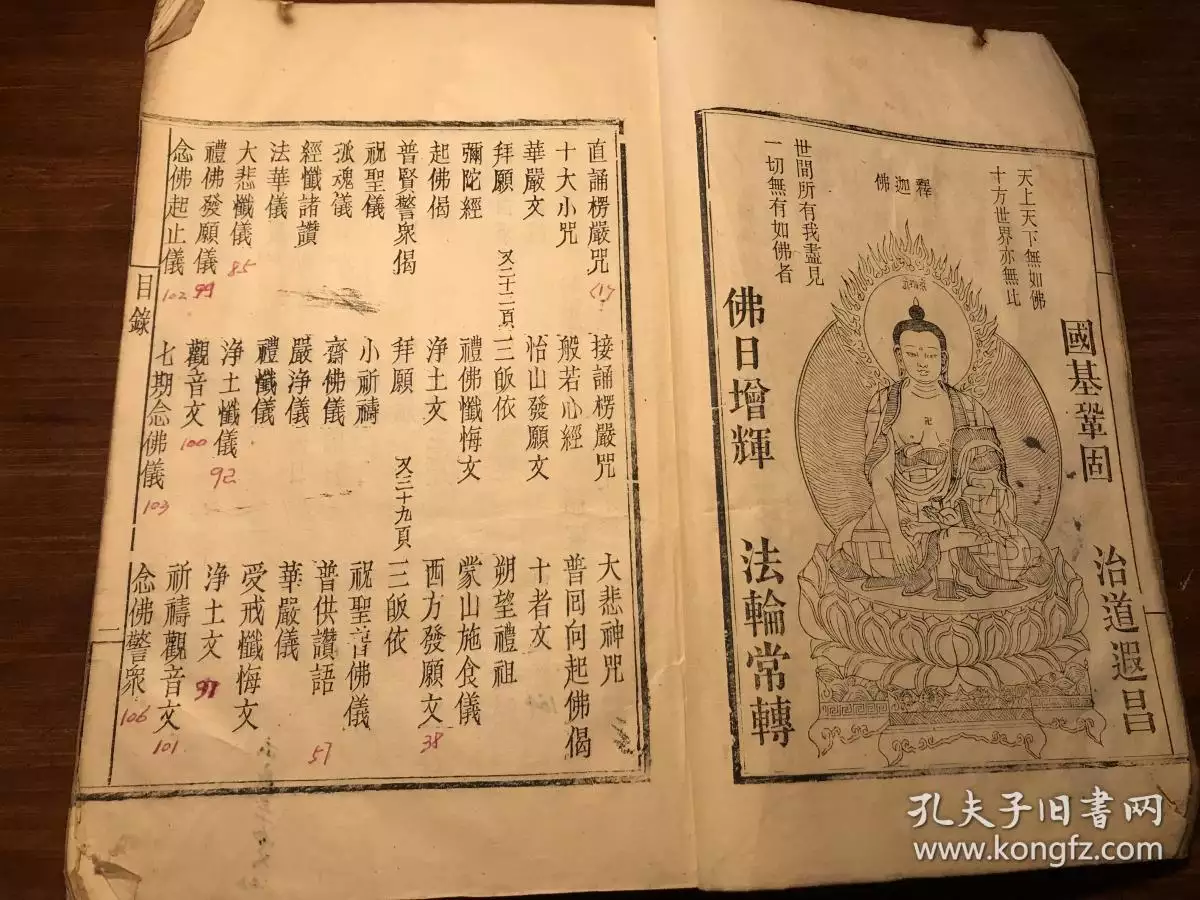 天上天下無如佛
十方世界亦無比
釋迦佛
世間所有我盡見
一切無有如佛者
國基鞏固 治道遐昌
佛日增輝 法輪常轉
直誦楞嚴咒 17 接誦楞嚴咒 大悲神咒
十大小咒 般若心經 普囘向起佛偈
華嚴文 怡山發願文 十者文
拜願 又二十二頁 三皈依 朔望禮祖
彌陀經 禮佛懺悔文 蒙山施食儀
起佛偈 浄土文 西方發願文 38
普賢警衆偈 拜願 又三十九頁 三皈依
祝聖儀 小祈禱 祝聖普佛儀
孤魂儀 齋佛儀 普供讚語 57
經懺諸讚 嚴浄儀 華嚴儀
法華儀 禮懺儀 受戒懺悔文
大悲懺儀 85 浄土懺儀 92 浄土文 97
禮佛發願儀 99 觀音文 100 祈禱觀音文 101
念佛起止儀 102 七期念佛儀 103 念佛警衆 106
目錄 二
孔夫子旧书网
www.kongfz.com